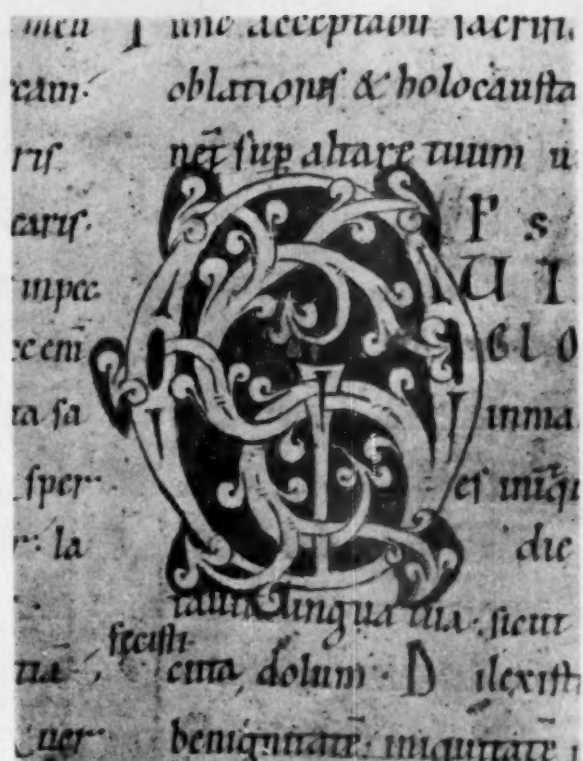 meū
ecam·
ris
caris·
inpec
ec eni̅
ta sa
sper
r: la
tiā
uer
T unc acceptabis sacrifi
oblationes & holocausta
net̅ sup altare tuum u
P s
Q U I
G L O
inma
es iniq
die
tauit lingua tua· sicut
fecisti
cuta dolum· D ilexisti
benignitatē: iniquitatē